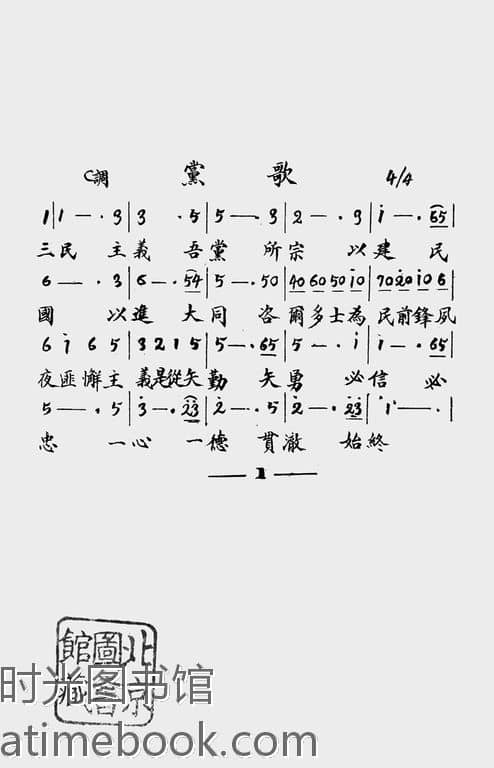 C調 黨歌 4/4
1|1—·3|3 ·5|5—·3|2—·3|i—·65|
三民 主義 吾黨 所宗 以建民
6——·3|6—·54|5—·50|40 60 50 i0|70 20 i0 6|
國 以進大同 咨爾多士為民前鋒夙
6 i 6 5|3 2 1 5|5—·65|5—·i|i—·65|
夜匪懈主義是從矢勤矢勇必信必
5—·5|3—·23|2—·5|2—·23|1—·|
忠 一心一德貫澈始終
— 1 —
北京圖書館藏
时光图书馆
atimebook.com